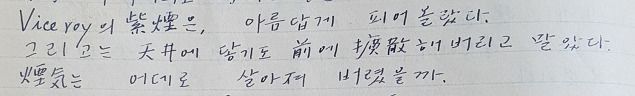 Viceroy의 紫煙은, 아름답게 피어 올랐다.
그리고는 天井에 닿기도 前에 擴散해 버리고 말았다.
煙気는 어데로 살아져 버렸을까.